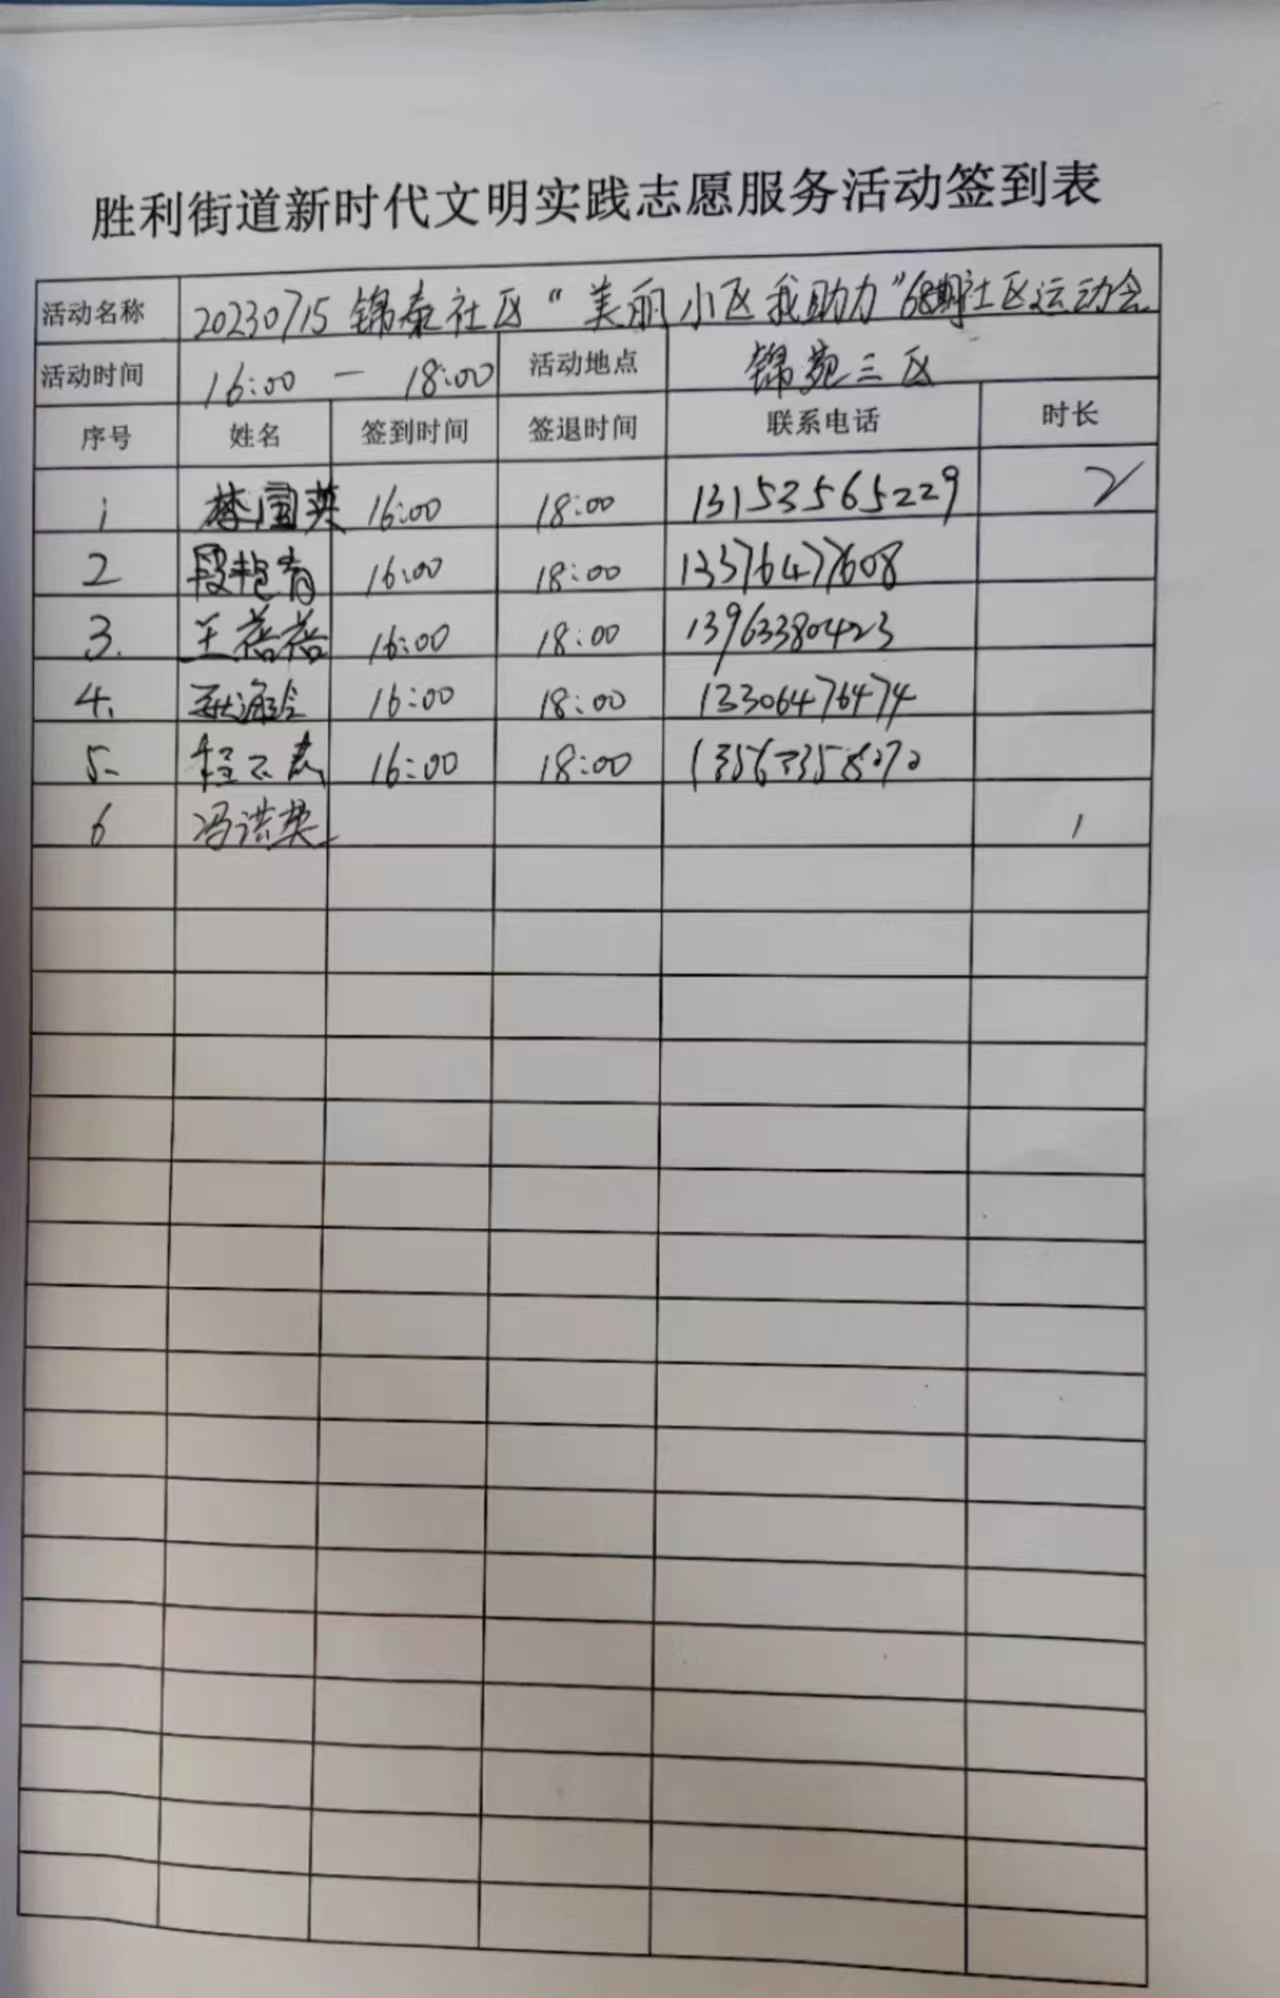 胜利街道新时代文明实践志愿服务活动签到表
活动名称 20230715 锦泰社区“美丽小区我助力”68期社区运动会
活动时间 16:00 — 18:00 活动地点 锦苑三区
序号 姓名 签到时间 签退时间 联系电话 时长
1 李国英 16:00 18:00 13153565229 2
2 段艳青 16:00 18:00 13376477608
3. 王蓓蓓 16:00 18:00 13963380423
4. 16:00 18:00 13306476474
5. 16:00 18:00
6 冯洪英 1